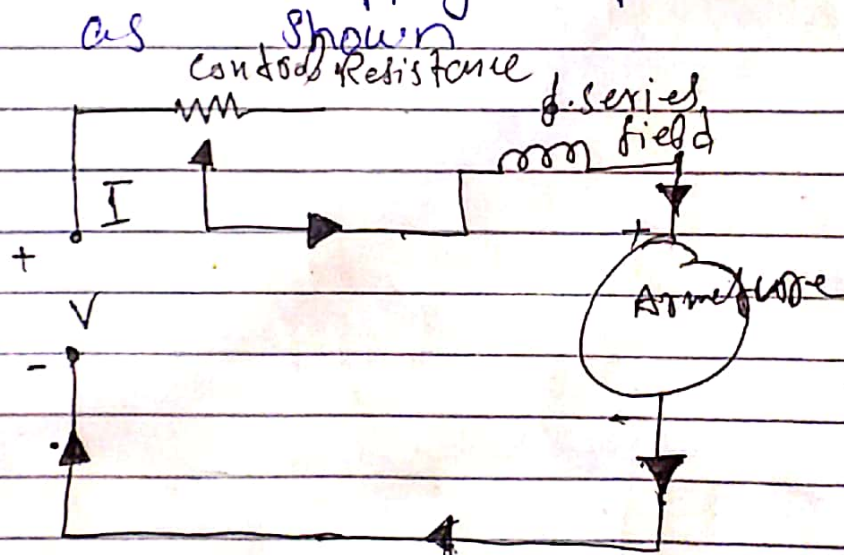 as shown
control Resistance
d.series
field
I
+
+
Armature
V
-